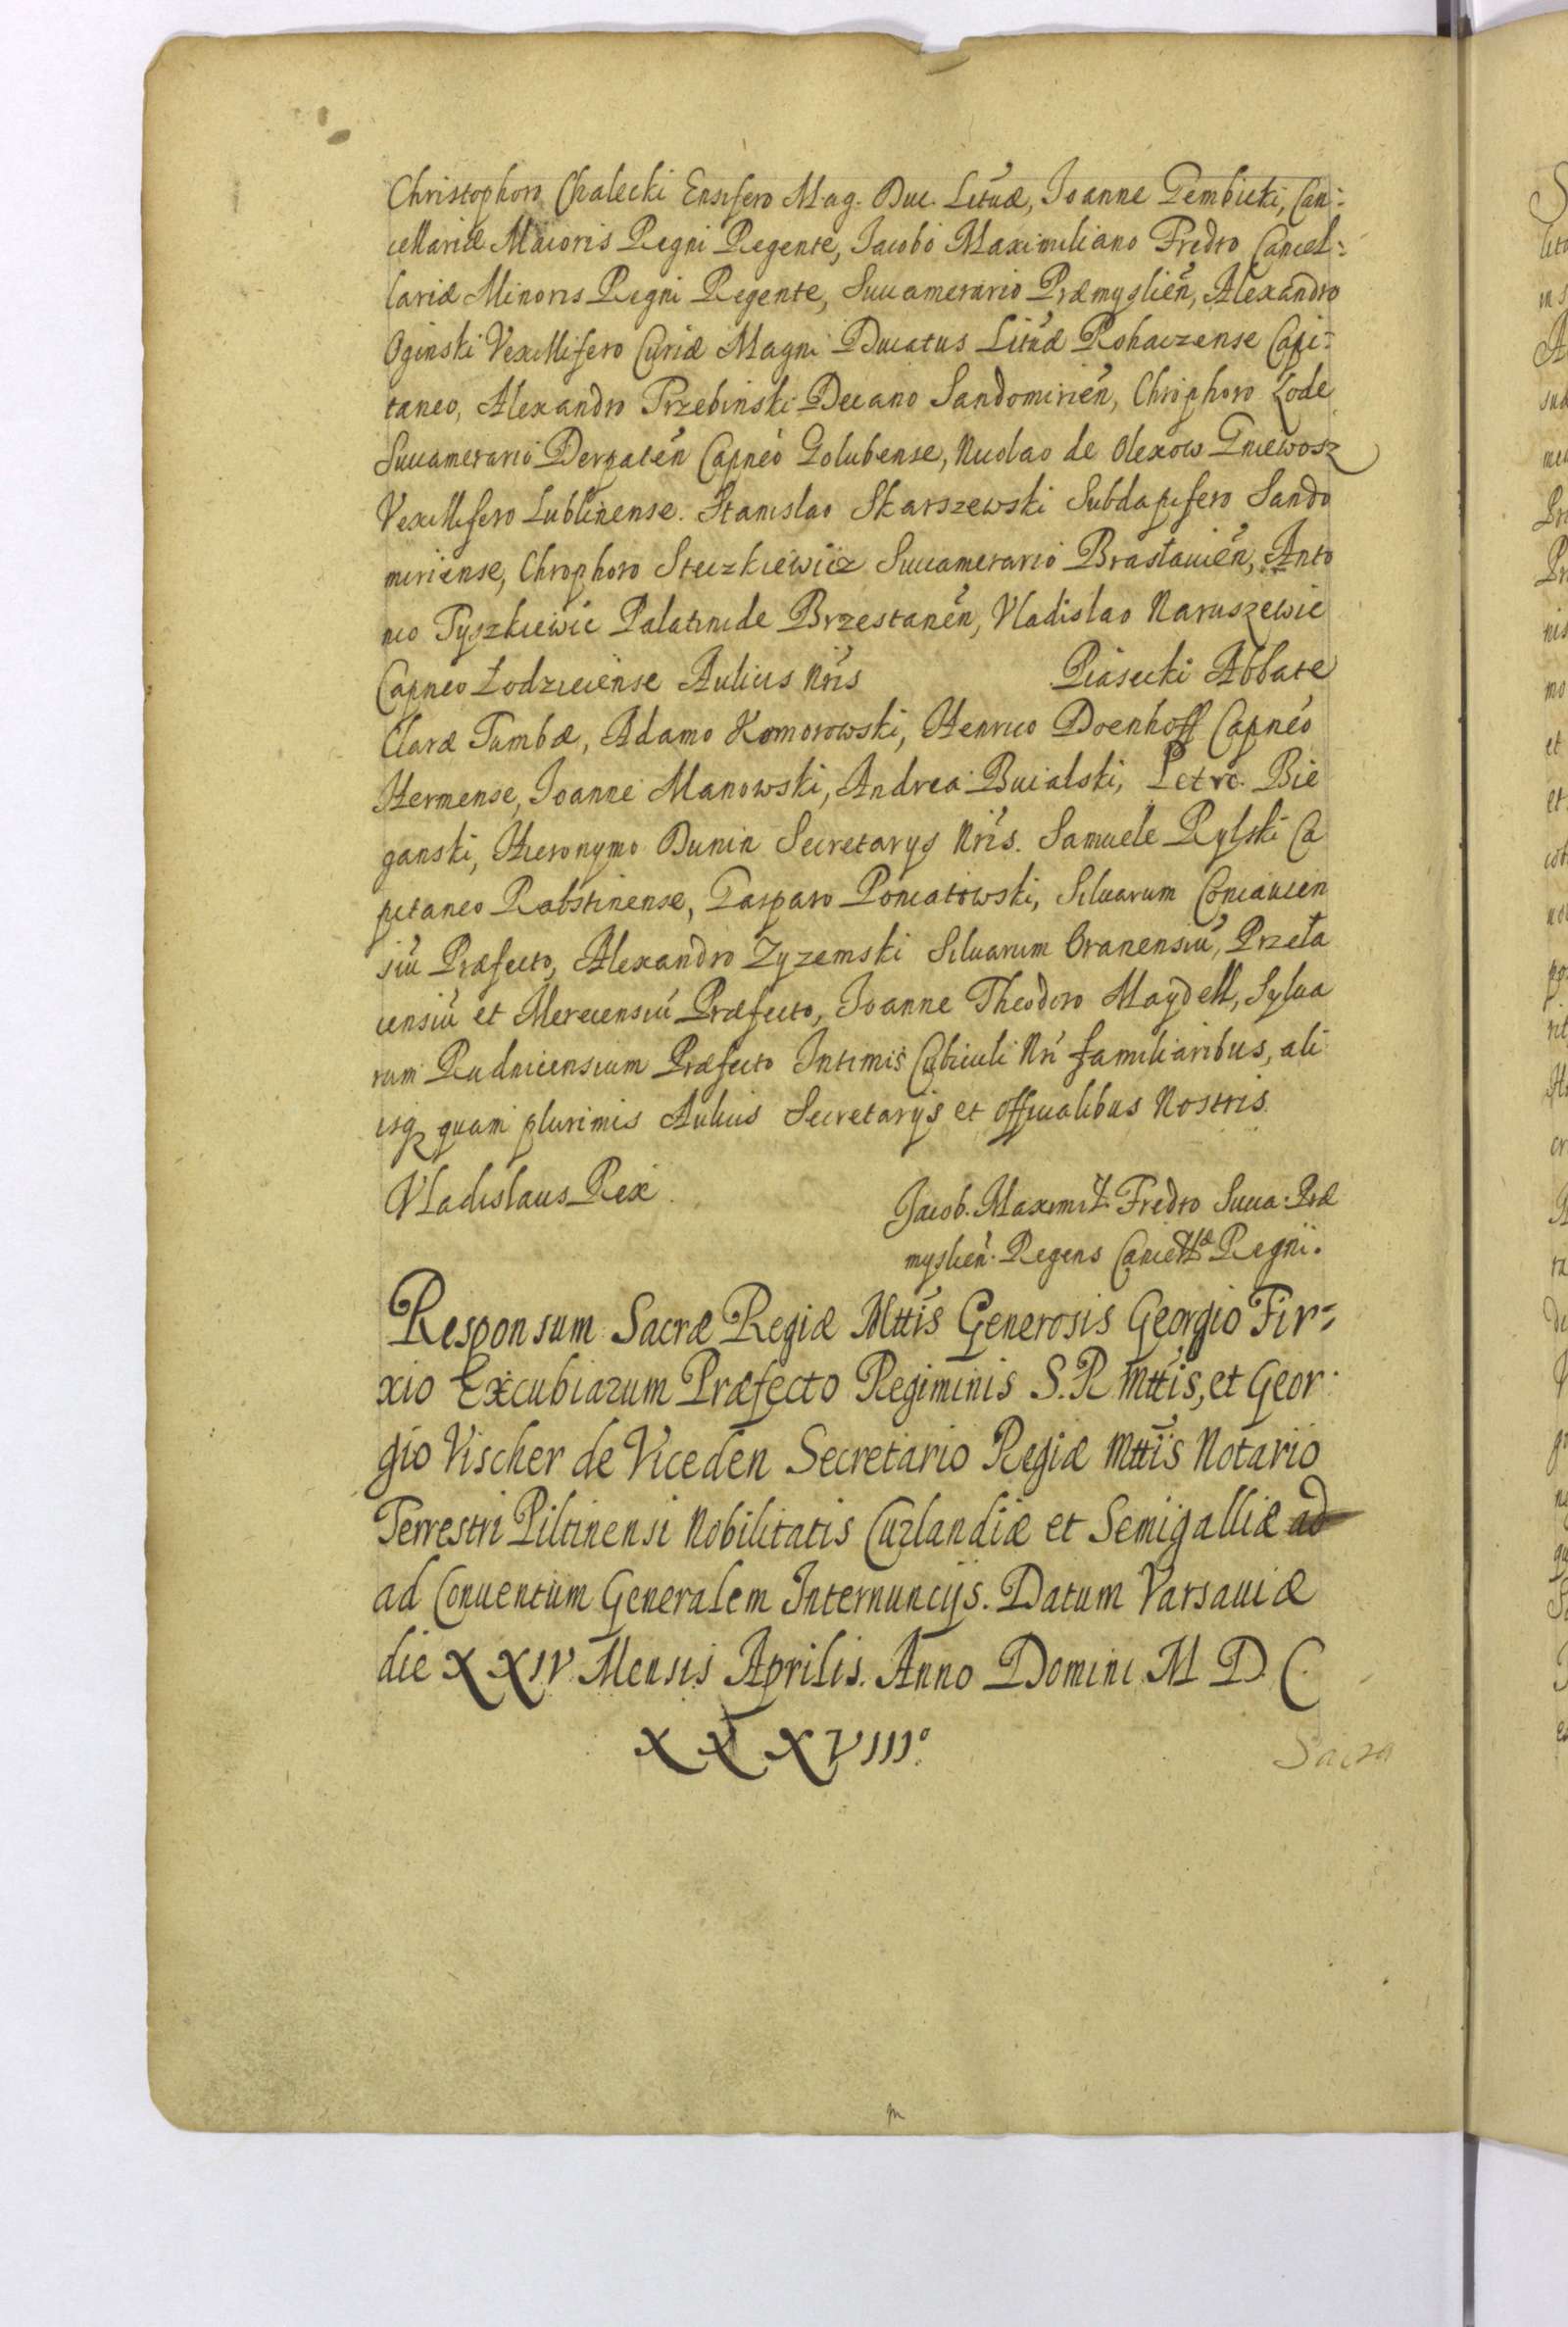 Christophoro Chalecki Ensifero Mag. Duc. Lituæ, Joanne Gembicki, Can:
cellariæ Maioris Regni Regente, Jacobo Maximiliano Fredro Cancel:
lariæ Minoris Regni Regente, Succamerario Præmyslień, Alexandro
Oginski Vexillifero Curiæ Magni Ducatus Lituæ Rohaczense Capi:
taneo, Alexandro Trzebinski Decano Sandomirień, Chrophoro Zode
Succamerario Derpatén Capneo Golubense, Nicolao de Olexow Gniewosz
Vexillifero Lublinense. Stanislao Skarszewski Subdapifero Sando
miriense, Chrophoro Steczkiewicz Succamerario Brasłauień, Anto
nio Tyszkiewic Palatinide Brzestanén, Vladislao Naruszewic
Capneo Łodzieciense Aulicis Nr̃is Piasecki Abbate
Claræ Tumbæ, Adamo Komorowski, Henrico Doenhoff Capneo
Hermense, Joanne Manowski, Andrea Bucalski, Petro. Bie
ganski, Hieronymo Dunin Secretarys Nr̃is. Samuele Rylski Ca
pitaneo Rabstinense, Gasparo Poniatowski, Siluarum Coniauien
siũ Præfecto, Alexandro Zyzemski Siluarum Oranensiũ, Przeła
iensiũ et Mereciensiũ Præfecto, Joanne Theodoro Maydell, Sylua
rum Rudnicensium Præfecto Intimis Cubiculi Nr̃i familiaribus, ali
isq quam plurimis Aulicis Secretarijs et officialibus Nostris.
Vladislaus Rex.
Jacob. Maximil. Fredro Succa: Præ
myslień. Regens Cancellæ Regni.
Responsum Sacræ Regiæ Mttis Generosis Georgio Fir=
xio Excubiarum Præfecto Regiminis S. R Mttis, et Geor:
gio Vischer de Viceden Secretario Regiæ Mttis Notario
Terrestri Piltinensi Nobilitatis Curlandiæ et Semigalliæ ad
ad Conuentum Generalem Internuncijs. Datum Varsauiæ
die XXIV Mensis Aprilis. Anno Domini M D C
XXXVIII°.
Sacra